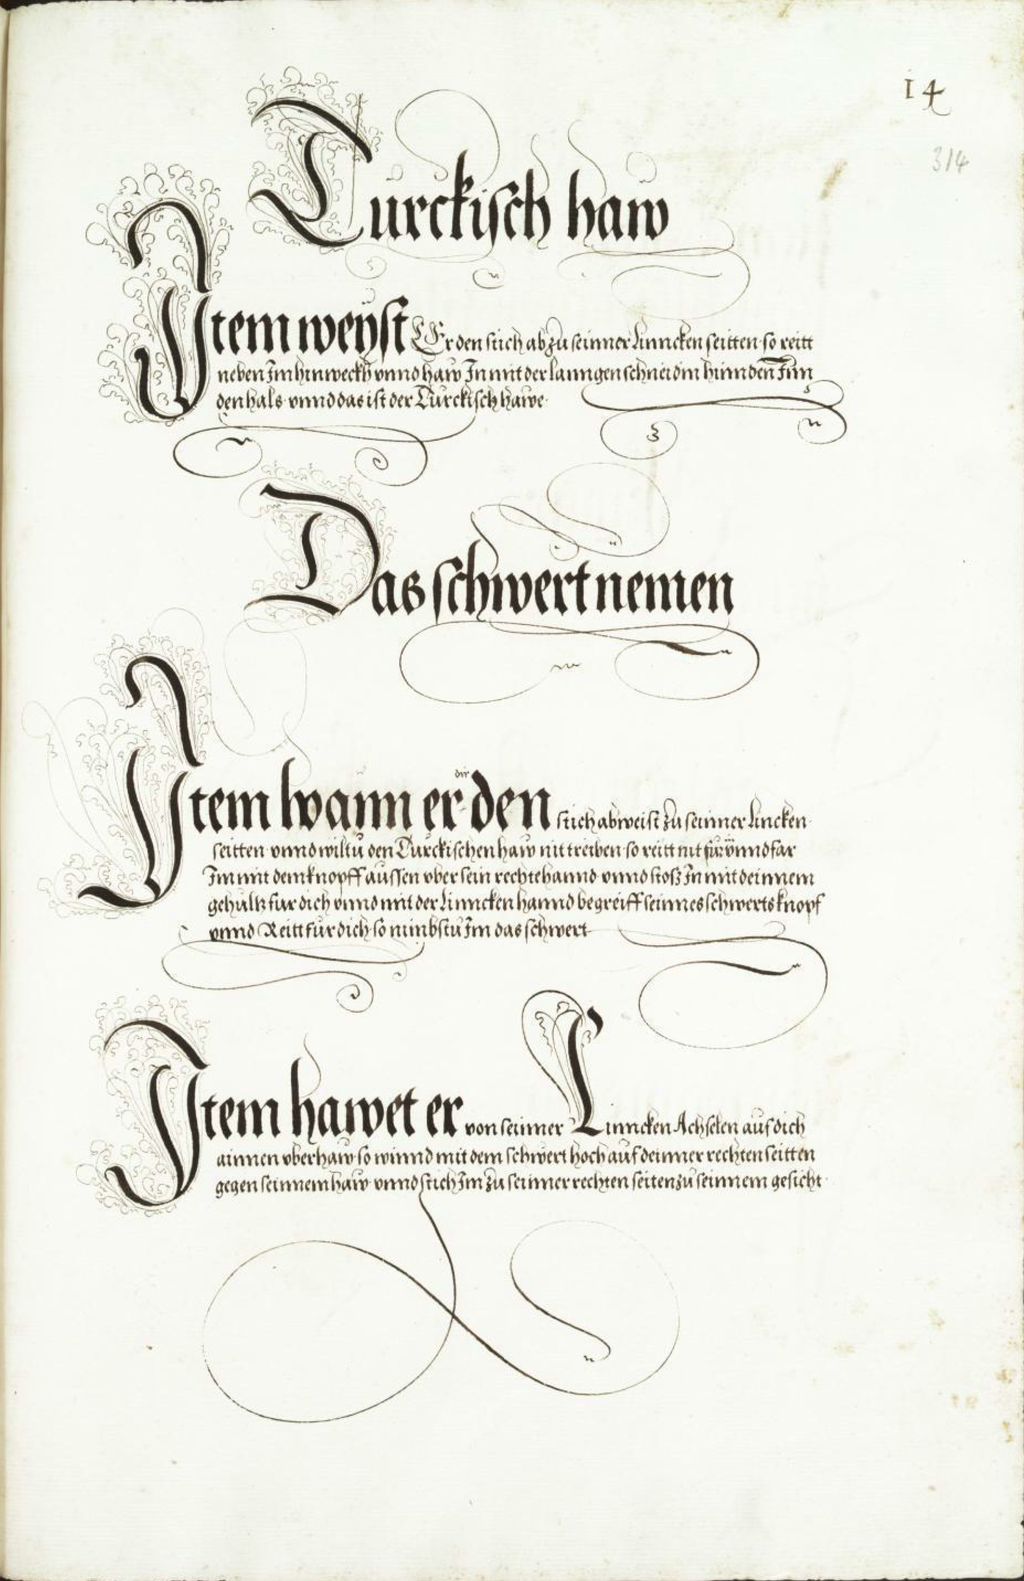 14
314
Turckisch haw
Item weyst Er den stich ab zu seinner linncken seitten so reitt
neben Im hinweckh vnnd haw In mit der lanngen schneid Im hinnden Inn
den hals vnnd das ist der Turckisch hawe
Das schwert nemen
dir
Item wann er den stich abweist zu seinner lincken
seitten vnnd wiltu den Turckischen haw nit treiben so reitt nit für vnnd far
Im mit dem knopff aussen vber sein rechte hannd vnnd stoß In mit deinnem
gehultz fur dich vnnd mit der linncken hannd begreiff seinnes schwerts knopf
vnnd Reitt fur dich so nimbstu Im das schwert
Item hawet er von seinner Linncken Achselen auf dich
ainnen vberhaw so winnd mit dem schwert hoch auf deinner rechten seitten
gegen seinnem haw vnnd stich Im zu seinner rechten seiten zu seinnem gesicht